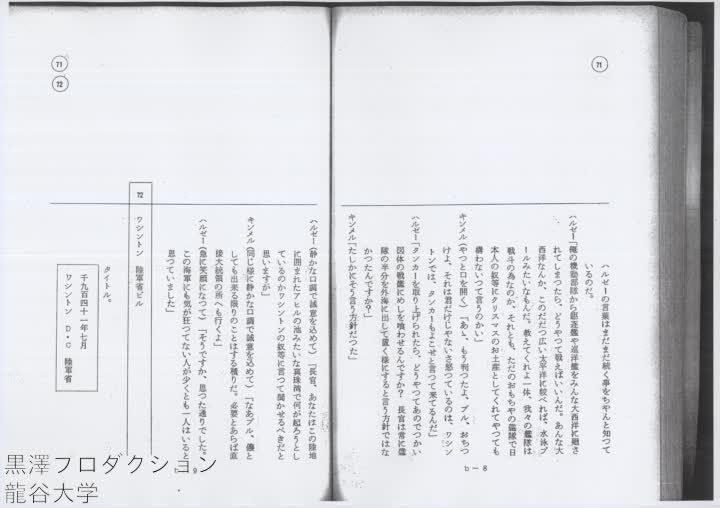 71
ハルゼーの言葉はまだまだ続く事をちやんと知つて
いるのだ。
ハルゼー「俺の機動部隊から駆逐艦や巡洋艦をみんな大西洋に廻さ
れてしまつたら、どうやつて戦えばいいんだ。あんな大
西洋なんか、このだだつ広い太平洋に較べれば、水泳プ
ールみたいなもんだ。教えてくれよ一体、我々の艦隊は
戦斗の為なのか、それとも、ただのおもちやの艦隊で日
本人の奴等にクリスマスのお土産としてくれてやつても
構わないつて言うのかい」
キンメル（やつと口を開く）「あゝ、もう判つたよ、ブル、おちつ
けよ、それは君だけじやないさ怒つているのは、ワシン
トンでは、タンカーもよこせと言つて来てるんだ」
ハルゼー「タンカーを取り上げられたら、どうやつてあのでつかい
図体の戦艦にめしを喰わせるんですか？　長官は常に艦
隊の半分を外海に出して置く様にすると言う方針ではな
かつたんですか？」
キンメル「たしかにそう言う方針だつた」
b－8
71
72
ハルゼー（静かな口調で誠意を込めて）「長官、あなたはこの陸地
に囲まれたアヒルの池みたいな真珠湾で何が起ろうとし
ているのかワシントンの奴等に言つて聞かせるべきだと
思いますが」
キンメル（同じ様に静かな口調で誠意を込めて）「なあブル、儂と
しても出来る限りのことはする積りだ。必要とあらば直
接大統領の所へも行くよ」
ハルゼー（急に笑顔になつて）「そうですか、思つた通りでした。
この海軍にも気が狂つてない人が少くとも一人はいると
思つていました」
72　ワシントン　陸軍省ビル
タイトル。
千九百四十一年七月
ワシントン　D・C　陸軍省
黒澤プロダクション
龍谷大学